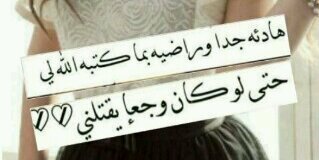 هادئه جدا وراضيه بما كتبه الله لي
حتى لو كان وجعإ يقتلني ♡♡